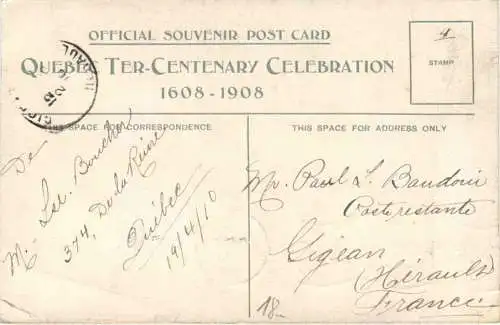 OFFICIAL SOUVENIR POST CARD
QUEBEC TER-CENTENARY CELEBRATION
1608-1908
STAMP
4
THIS SPACE FOR CORRESPONDENCE
THIS SPACE FOR ADDRESS ONLY
De
M. Lse. Boucher
374, De la Reine
Québec
19/4/10
Mr. Paul L. Baudoin
Poste restante
Gigean
(Hérault)
France
18